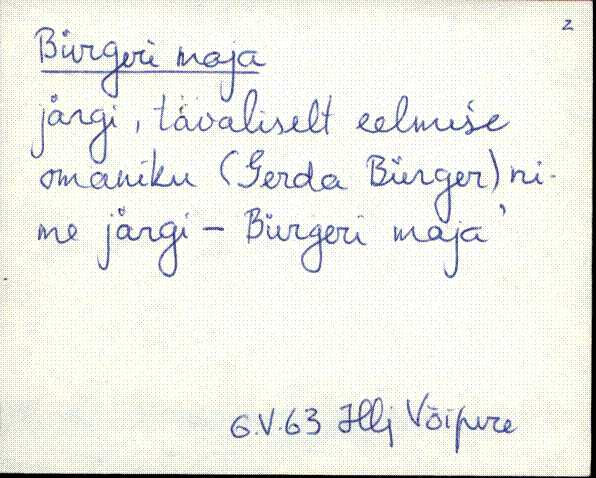 2
Bürgeri maja
järgi, tavaliselt eelmise
omaniku (Gerda Bürger) ni-
me järgi – Bürgeri maja'
6.V.63 Illj Võipure